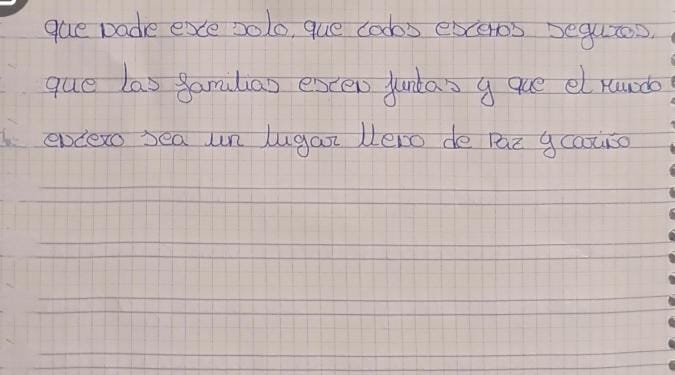 que nadie este solo, que todos estemos seguros,
que las familias esten juntas y que el mundo
entero sea un lugar lleno de Paz y cariño